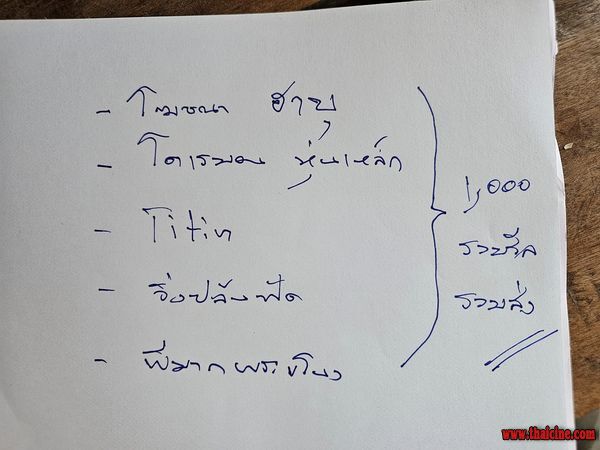 - โฆษณา ฮายุ
- โดเรมอน หุ่นเหล็ก
- Titin
- วิ่งปล้นฟัด
- พี่มากพระโขนง
1,000
รวมส่ง
www.thaicine.com